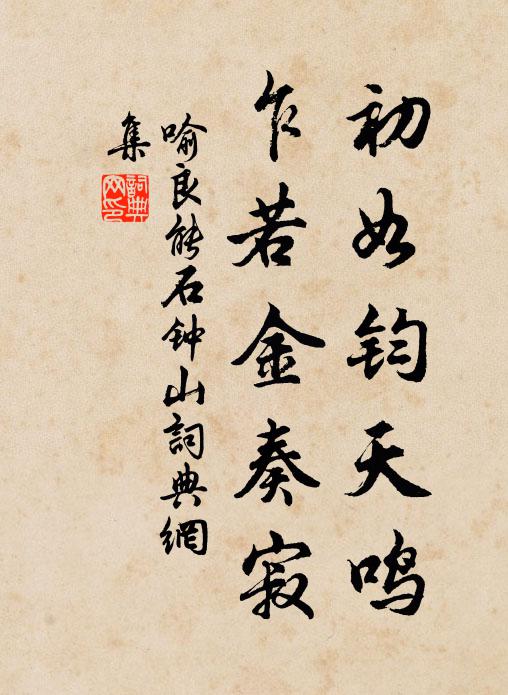 初如钧天鸣
乍若金奏寂
喻良能石钟山詞典網
集
詞典
网印